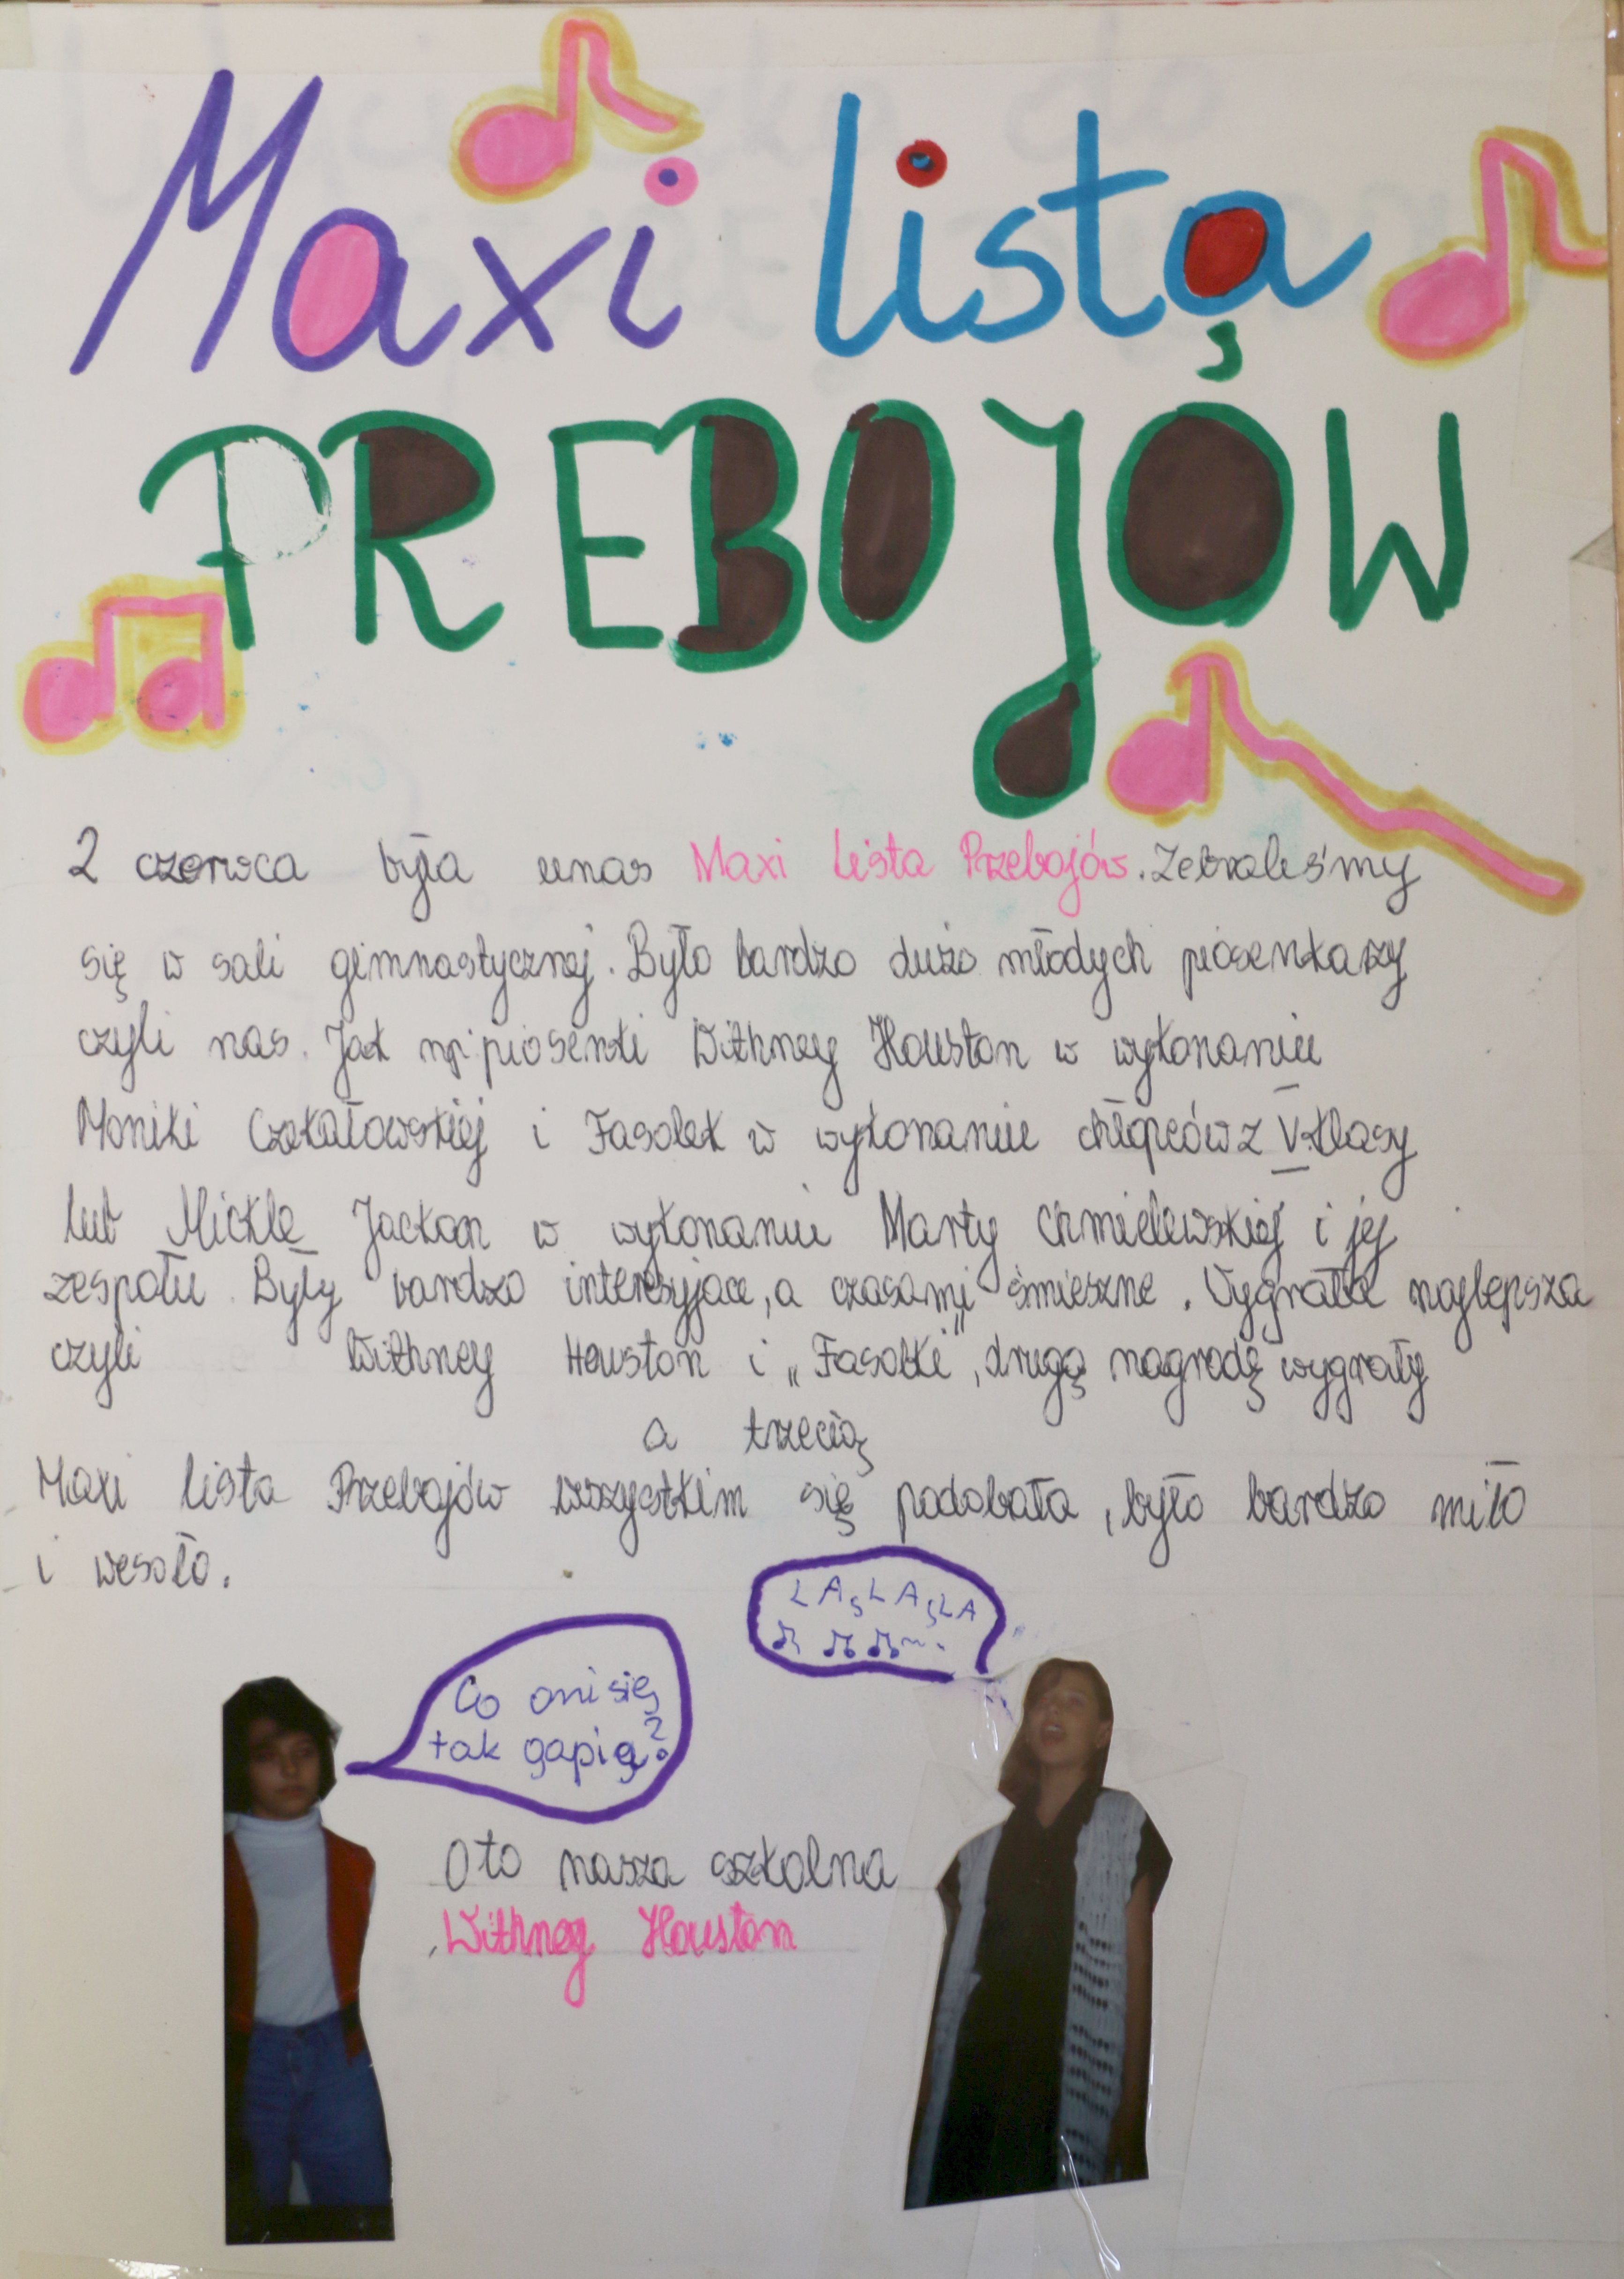 Maxi lista
PREBOJÓW
2 czerwca była unas Maxi Lista Przebojów. Zebraliśmy
się w sali gimnastycznej. Było bardzo dużo młodych piosenkaszy
czyli nas. Jak np. piosenki Withney Houston w wykonaniu
Moniki Czekałowskiej i Fasolek w wykonaniu chłopców z V klasy
lub Mickle Jackon w wykonaniu Marty Chmielewskiej i jej
zespołu. Były bardzo interesyjace, a czasami śmieszne. Wygrała najlepsza
czyli Withney Houston i „Fasolki", drugą nagrodę wygrały
a trzecią
Maxi lista Przebojów wszystkim się podobała, było bardzo miło
i wesoło.
LA, LA, LA
Co oni się
tak gapią?
Oto nasza szkolna
Withney Houston